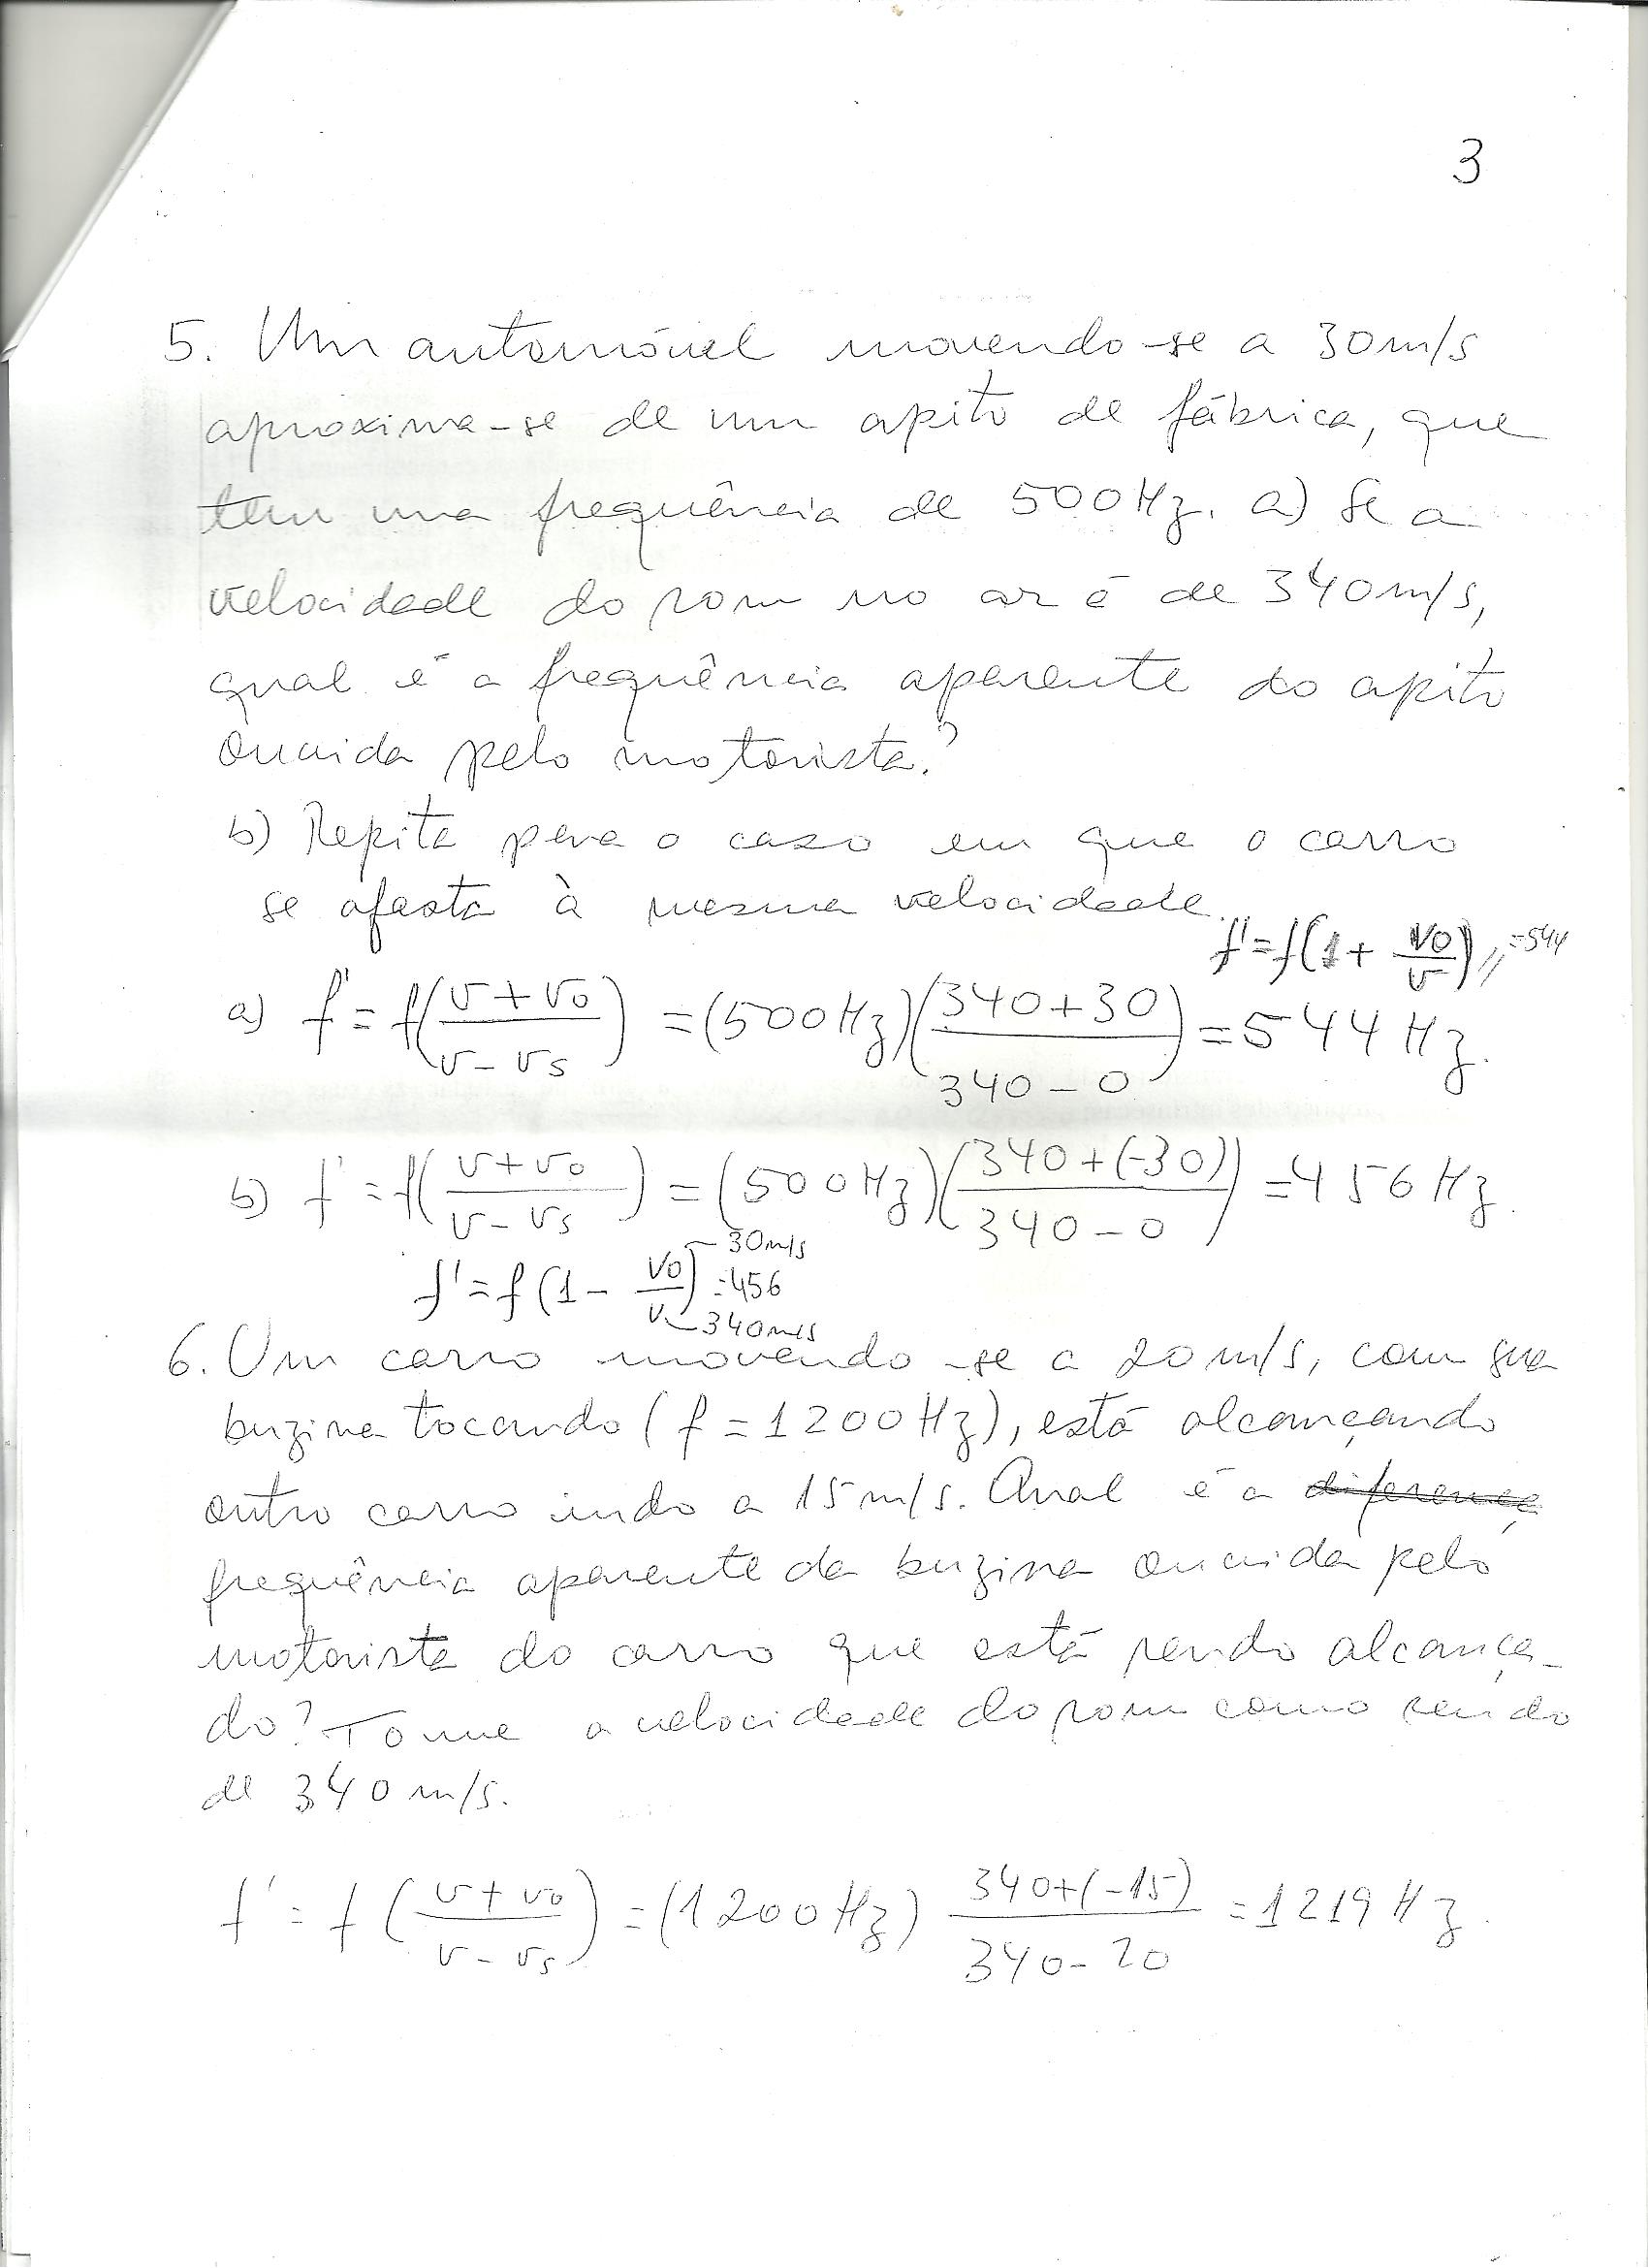 3
5. Um automóvel movendo-se a 30m/s
aproxima-se de um apito de fábrica, que
tem uma frequência de 500Hz. a) Se a
velocidade do som no ar é de 340m/s,
qual é a frequência aparente do apito
ouvida pelo motorista?
b) Repita para o caso em que o carro
se afasta à mesma velocidade.
f'=f(1+ vo/v),, =544
a) f'=f(v+vo/v-vs) =(500Hz)(340+30/340-0)=544Hz.
b) f'=f(v+vo/v-vs)=(500Hz)(340+(-30)/340-0)=456Hz.
f'=f(1- vo/v)=456
30m/s
340m/s
6. Um carro movendo-se a 20m/s, com sua
buzina tocando (f=1200Hz), está alcançando
outro carro indo a 15m/s. Qual é a diferença
frequência aparente da buzina ouvida pelo
motorista do carro que está sendo alcança-
do? Tome a velocidade do som como sendo
de 340m/s.
f'=f(v+vo/v-vs)=(1200Hz) 340+(-15)/340-20 =1219Hz.